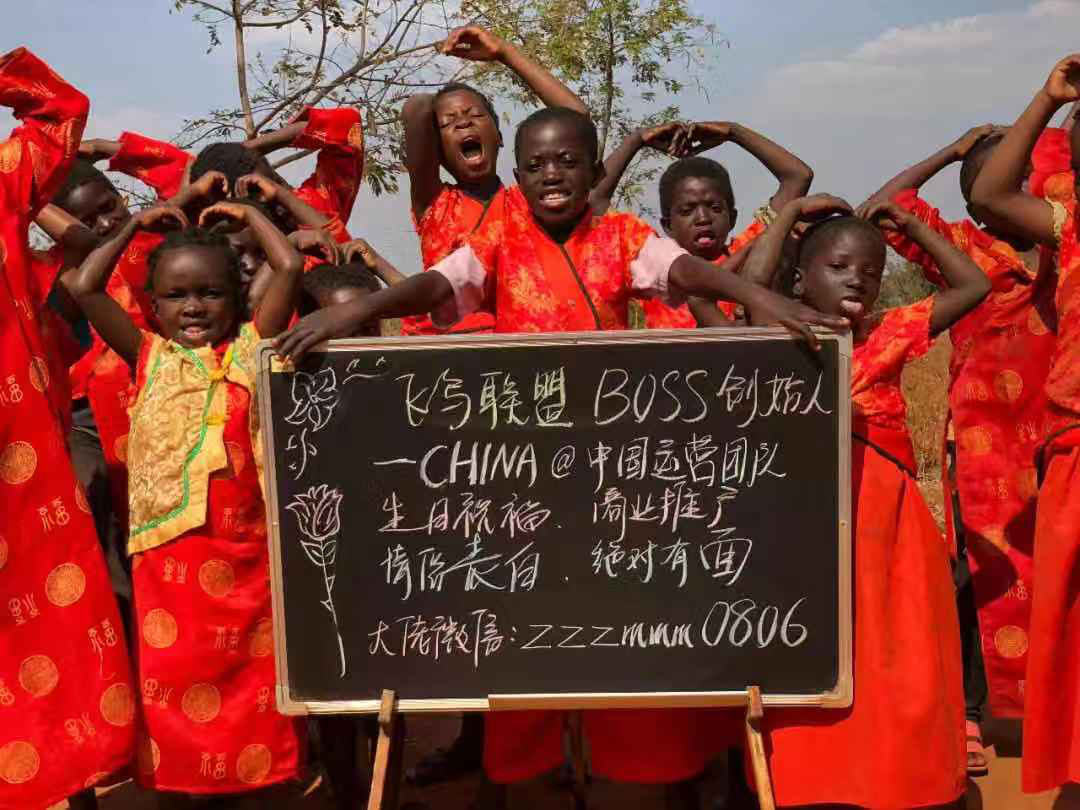 飞鸟联盟 BOSS创始人
一CHINA@中国运营团队
生日祝福. 商业推广
情侣表白. 绝对有面
大佬微信:zzzmmm0806